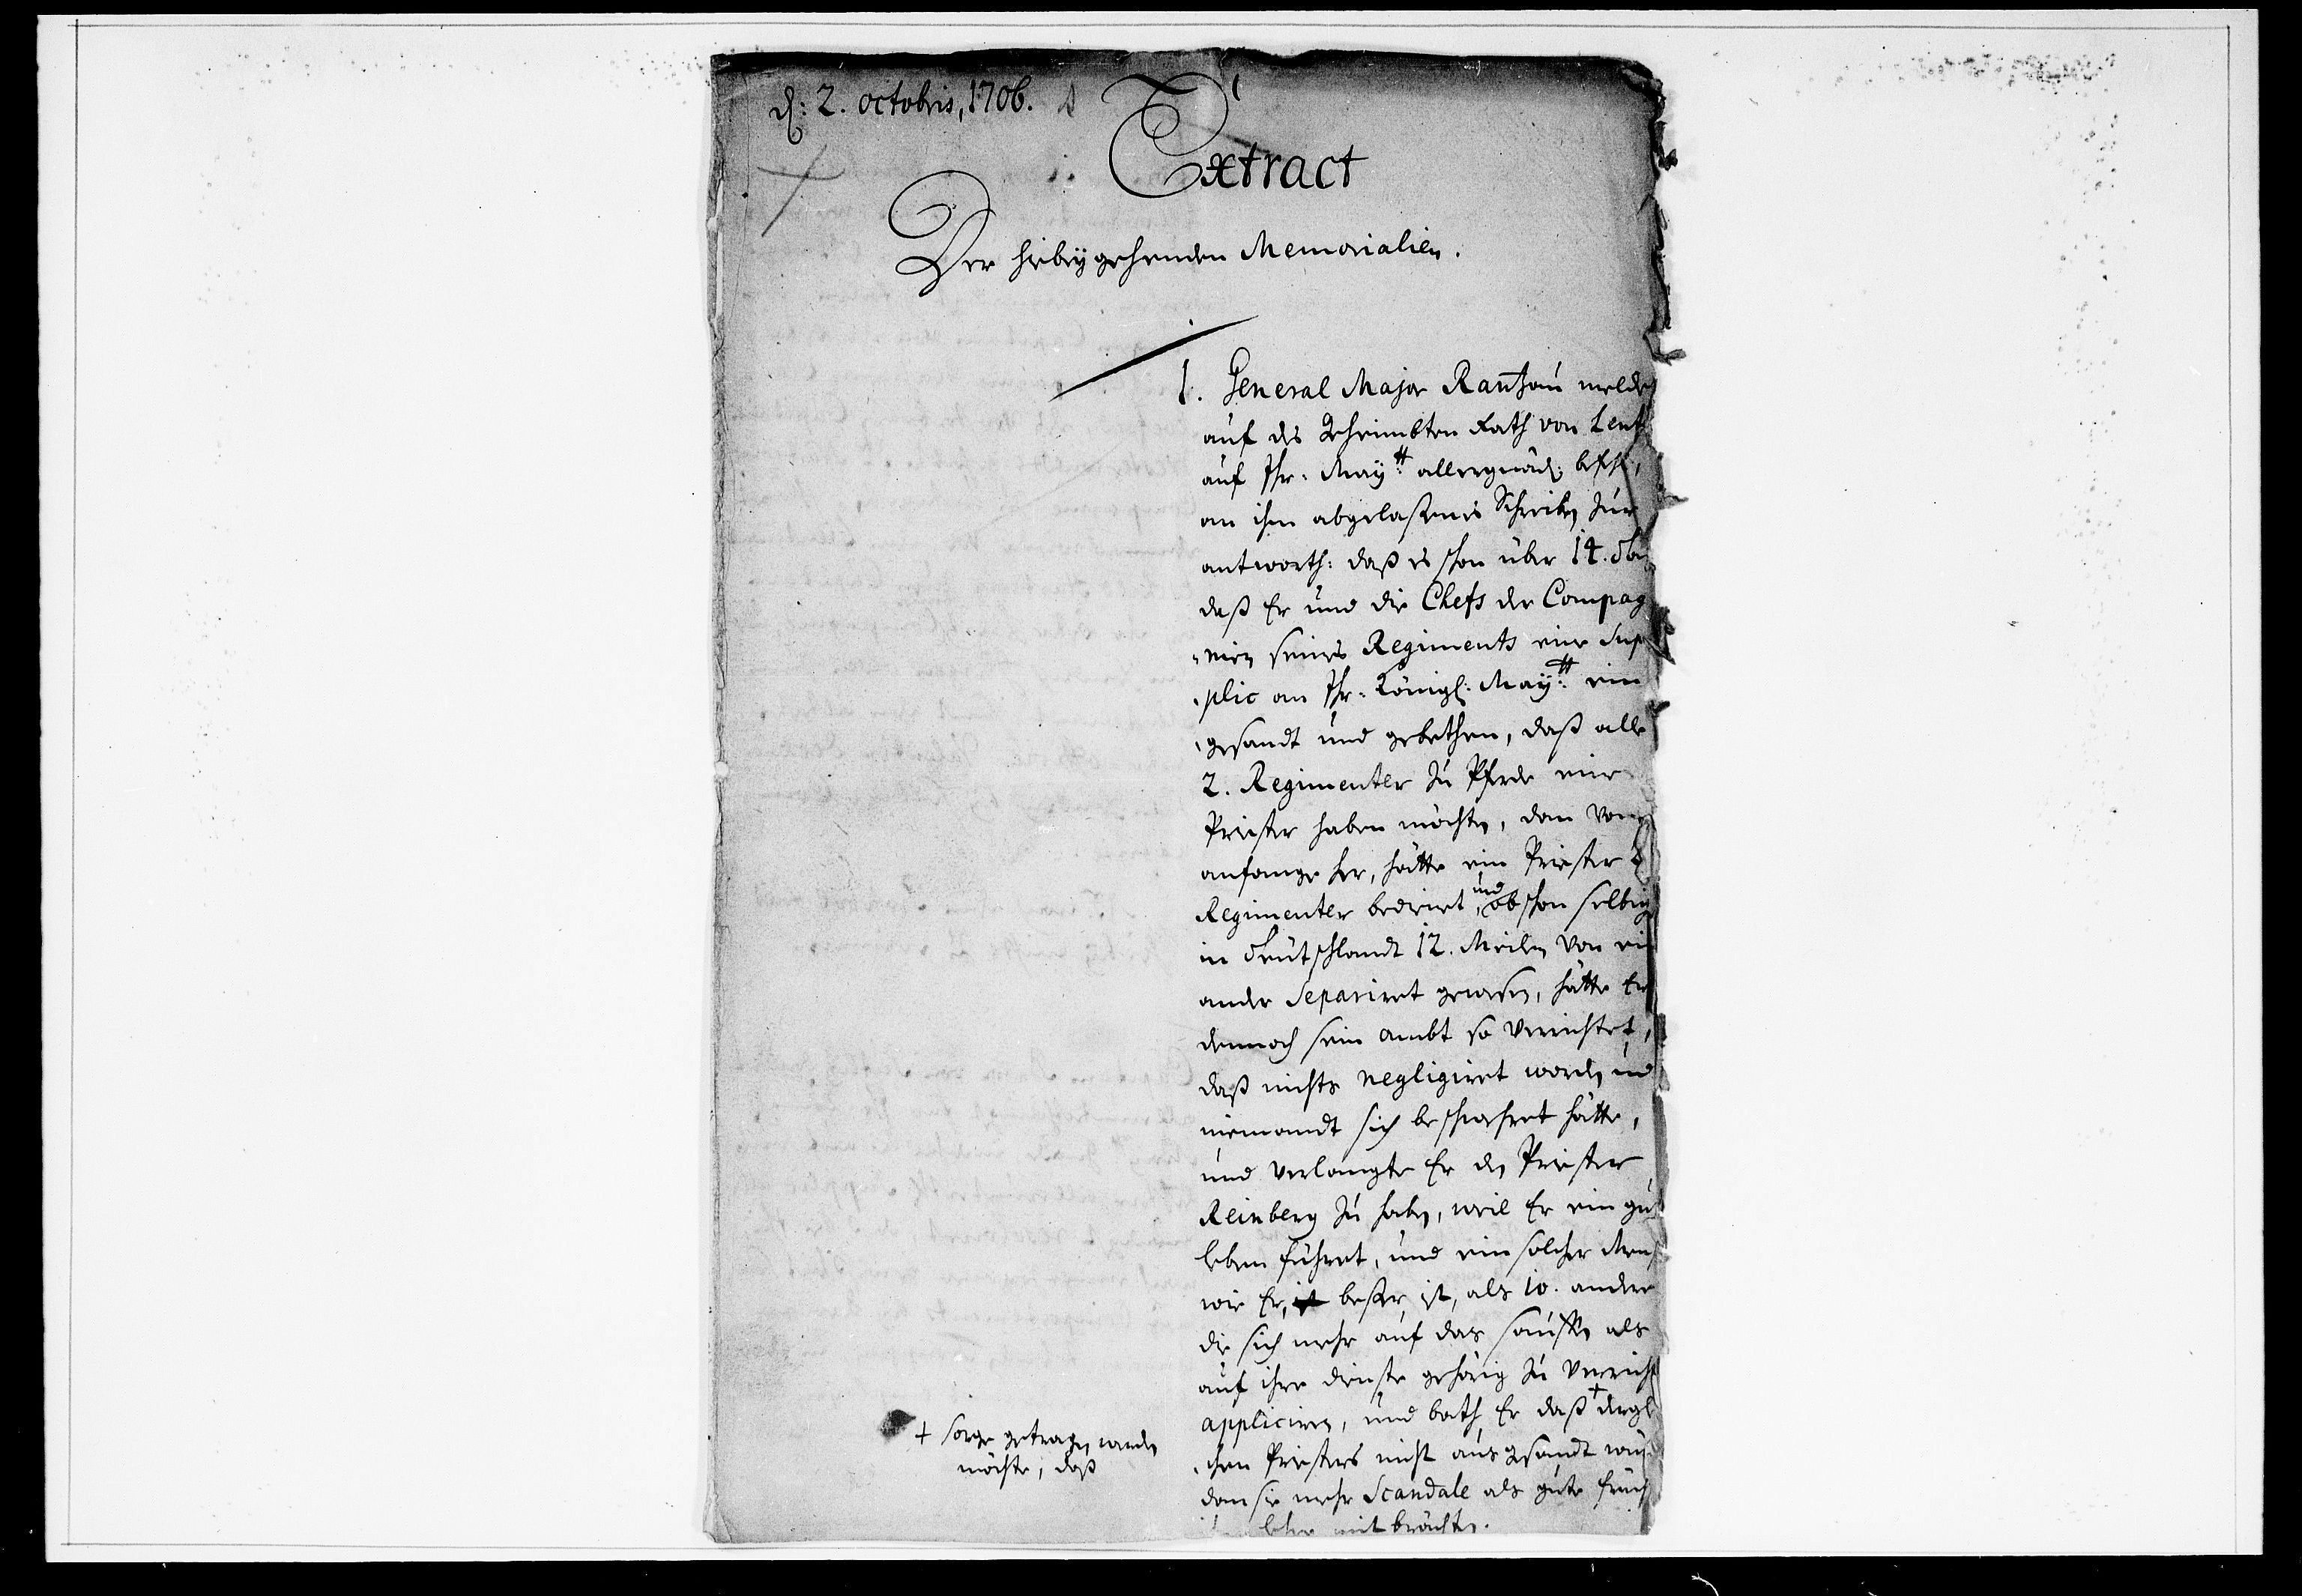 d: 2. octobris, 1706.
Extract
Der hiebeÿ gehenden Memorialien.
1. General Major Rantzau meldet
auf des Geheimbten Rath von Lent
auf Ihr: Maÿ:tt allergnäd: befehl,
an ihm abgelaßenes Schreiben zur
antworth: daß es schon über 14.
daß Er und die Chefs der Compag
nien seines Regiments eine Sup
plic an Ihr: Königl: Maÿ:tt ein
gesandt und gebethen, daß alle
2. Regimenter zu Pferde eine
Priester haben möchten, dan von
anfange her, hätte ein Priester 2
Regimenter bedienet, und obschon selbige
in Teutschlandt 12. Meilen von ein
ander Separiret gewesen, hätte Er
dennoch sein ambt so verrichtet,
daß nichts negligiret worden und
niemandt sich beschwehret hätte,
und verlangte Er den Priester
Reinberg zu haben, weil Er ein gut
leben führet, und ein solcher Mens
wie Er, ist beßer ist, als 10. andere
die sich mehr auf das sauffen als
auf ihre dienste gehörig zu verricht
appliciren, und bath Er daß + dergl
chen Priesters nicht aus gesandt wür
dan sie mehr Scandale als gute früch
lehre mit brächten.
+ sorge getragen werden
möchte, daß